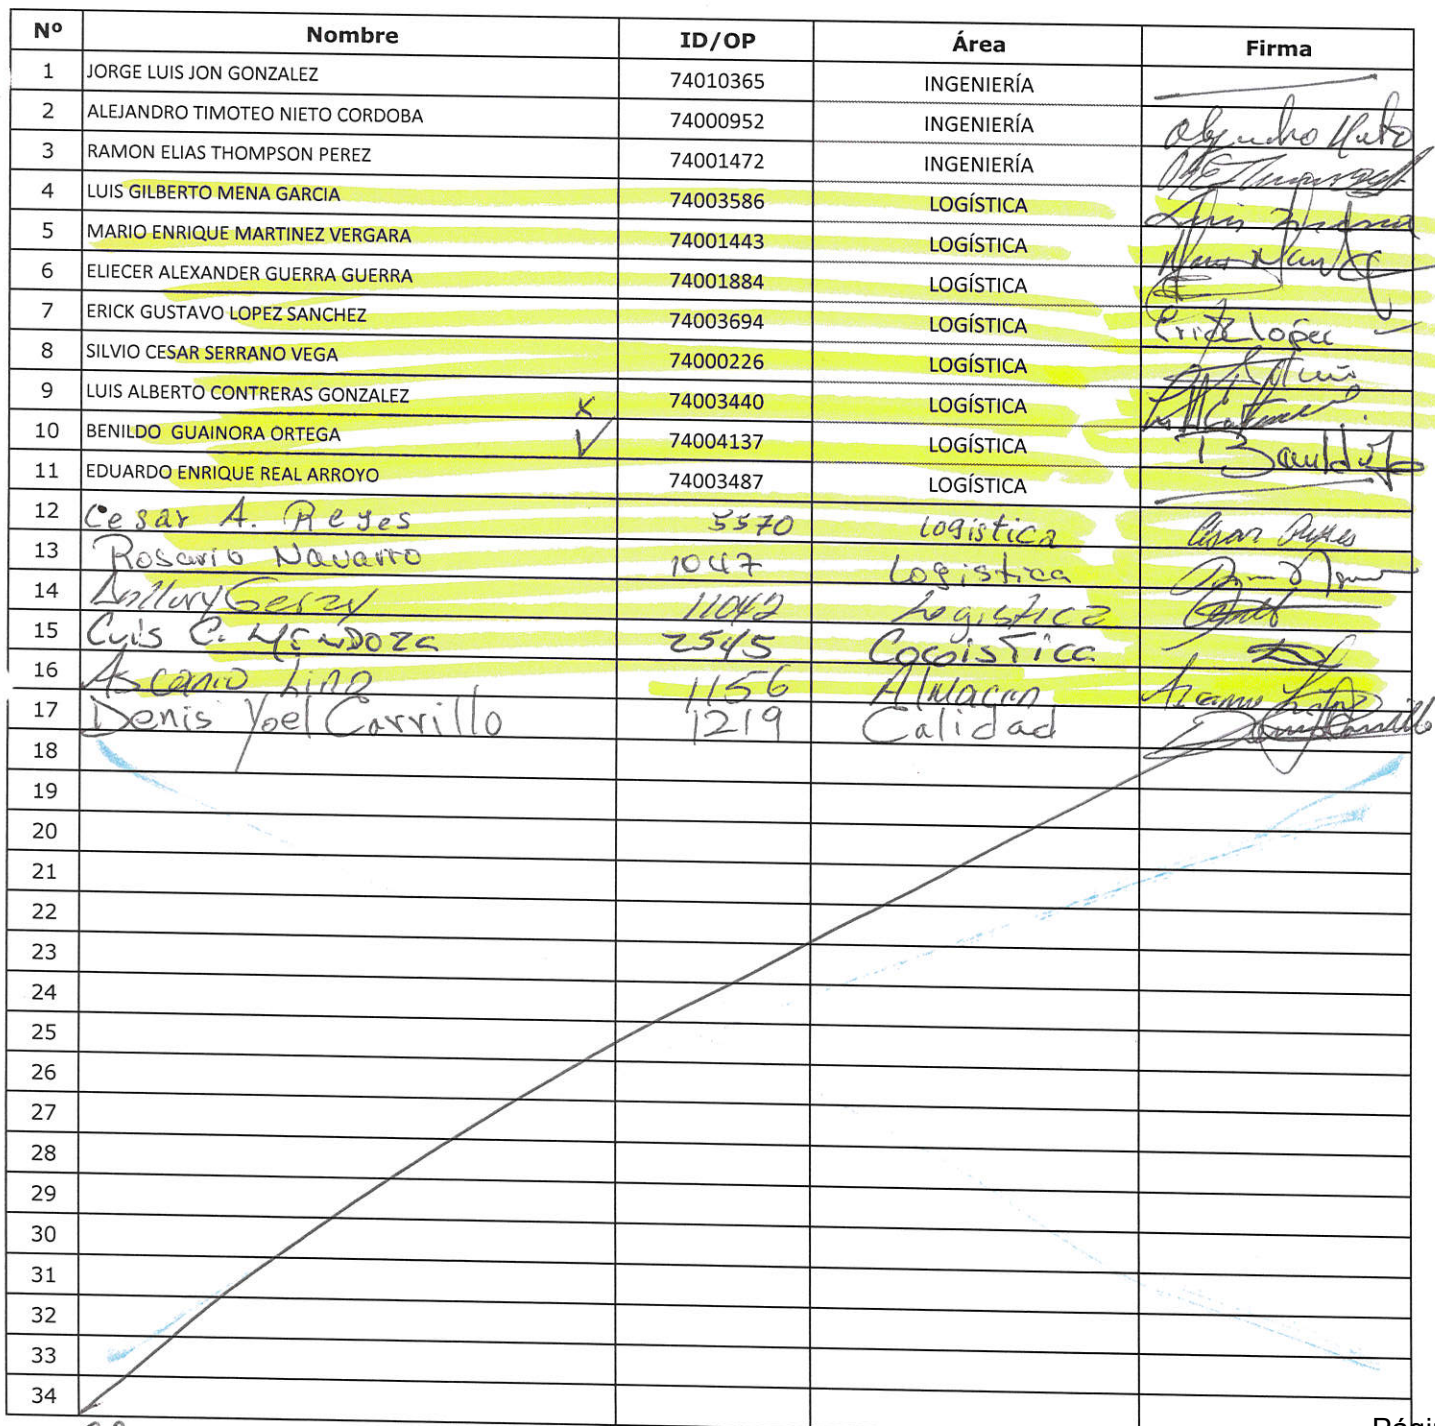 Nº Nombre ID/OP Área Firma
1 JORGE LUIS JON GONZALEZ 74010365 INGENIERÍA
2 ALEJANDRO TIMOTEO NIETO CORDOBA 74000952 INGENIERÍA Alejandro Nieto
3 RAMON ELIAS THOMPSON PEREZ 74001472 INGENIERÍA
4 LUIS GILBERTO MENA GARCIA 74003586 LOGÍSTICA Luis Mena
5 MARIO ENRIQUE MARTINEZ VERGARA 74001443 LOGÍSTICA
6 ELIECER ALEXANDER GUERRA GUERRA 74001884 LOGÍSTICA
7 ERICK GUSTAVO LOPEZ SANCHEZ 74003694 LOGÍSTICA Erick Lopez
8 SILVIO CESAR SERRANO VEGA 74000226 LOGÍSTICA
9 LUIS ALBERTO CONTRERAS GONZALEZ x 74003440 LOGÍSTICA
10 BENILDO GUAINORA ORTEGA ✓ 74004137 LOGÍSTICA Benildo
11 EDUARDO ENRIQUE REAL ARROYO 74003487 LOGÍSTICA
12 Cesar A. Reyes 5570 Logistica Cesar Reyes
13 Rosario Navarro 1047 Logistica
14 11042 Logistica
15 Luis C. Mendoza 2545 Logistica
16 Ascanio Lino 1156 Almacen Ascanio Lino
17 Denis Yoel Carrillo 1219 Calidad Denis Carrillo
18
19
20
21
22
23
24
25
26
27
28
29
30
31
32
33
34